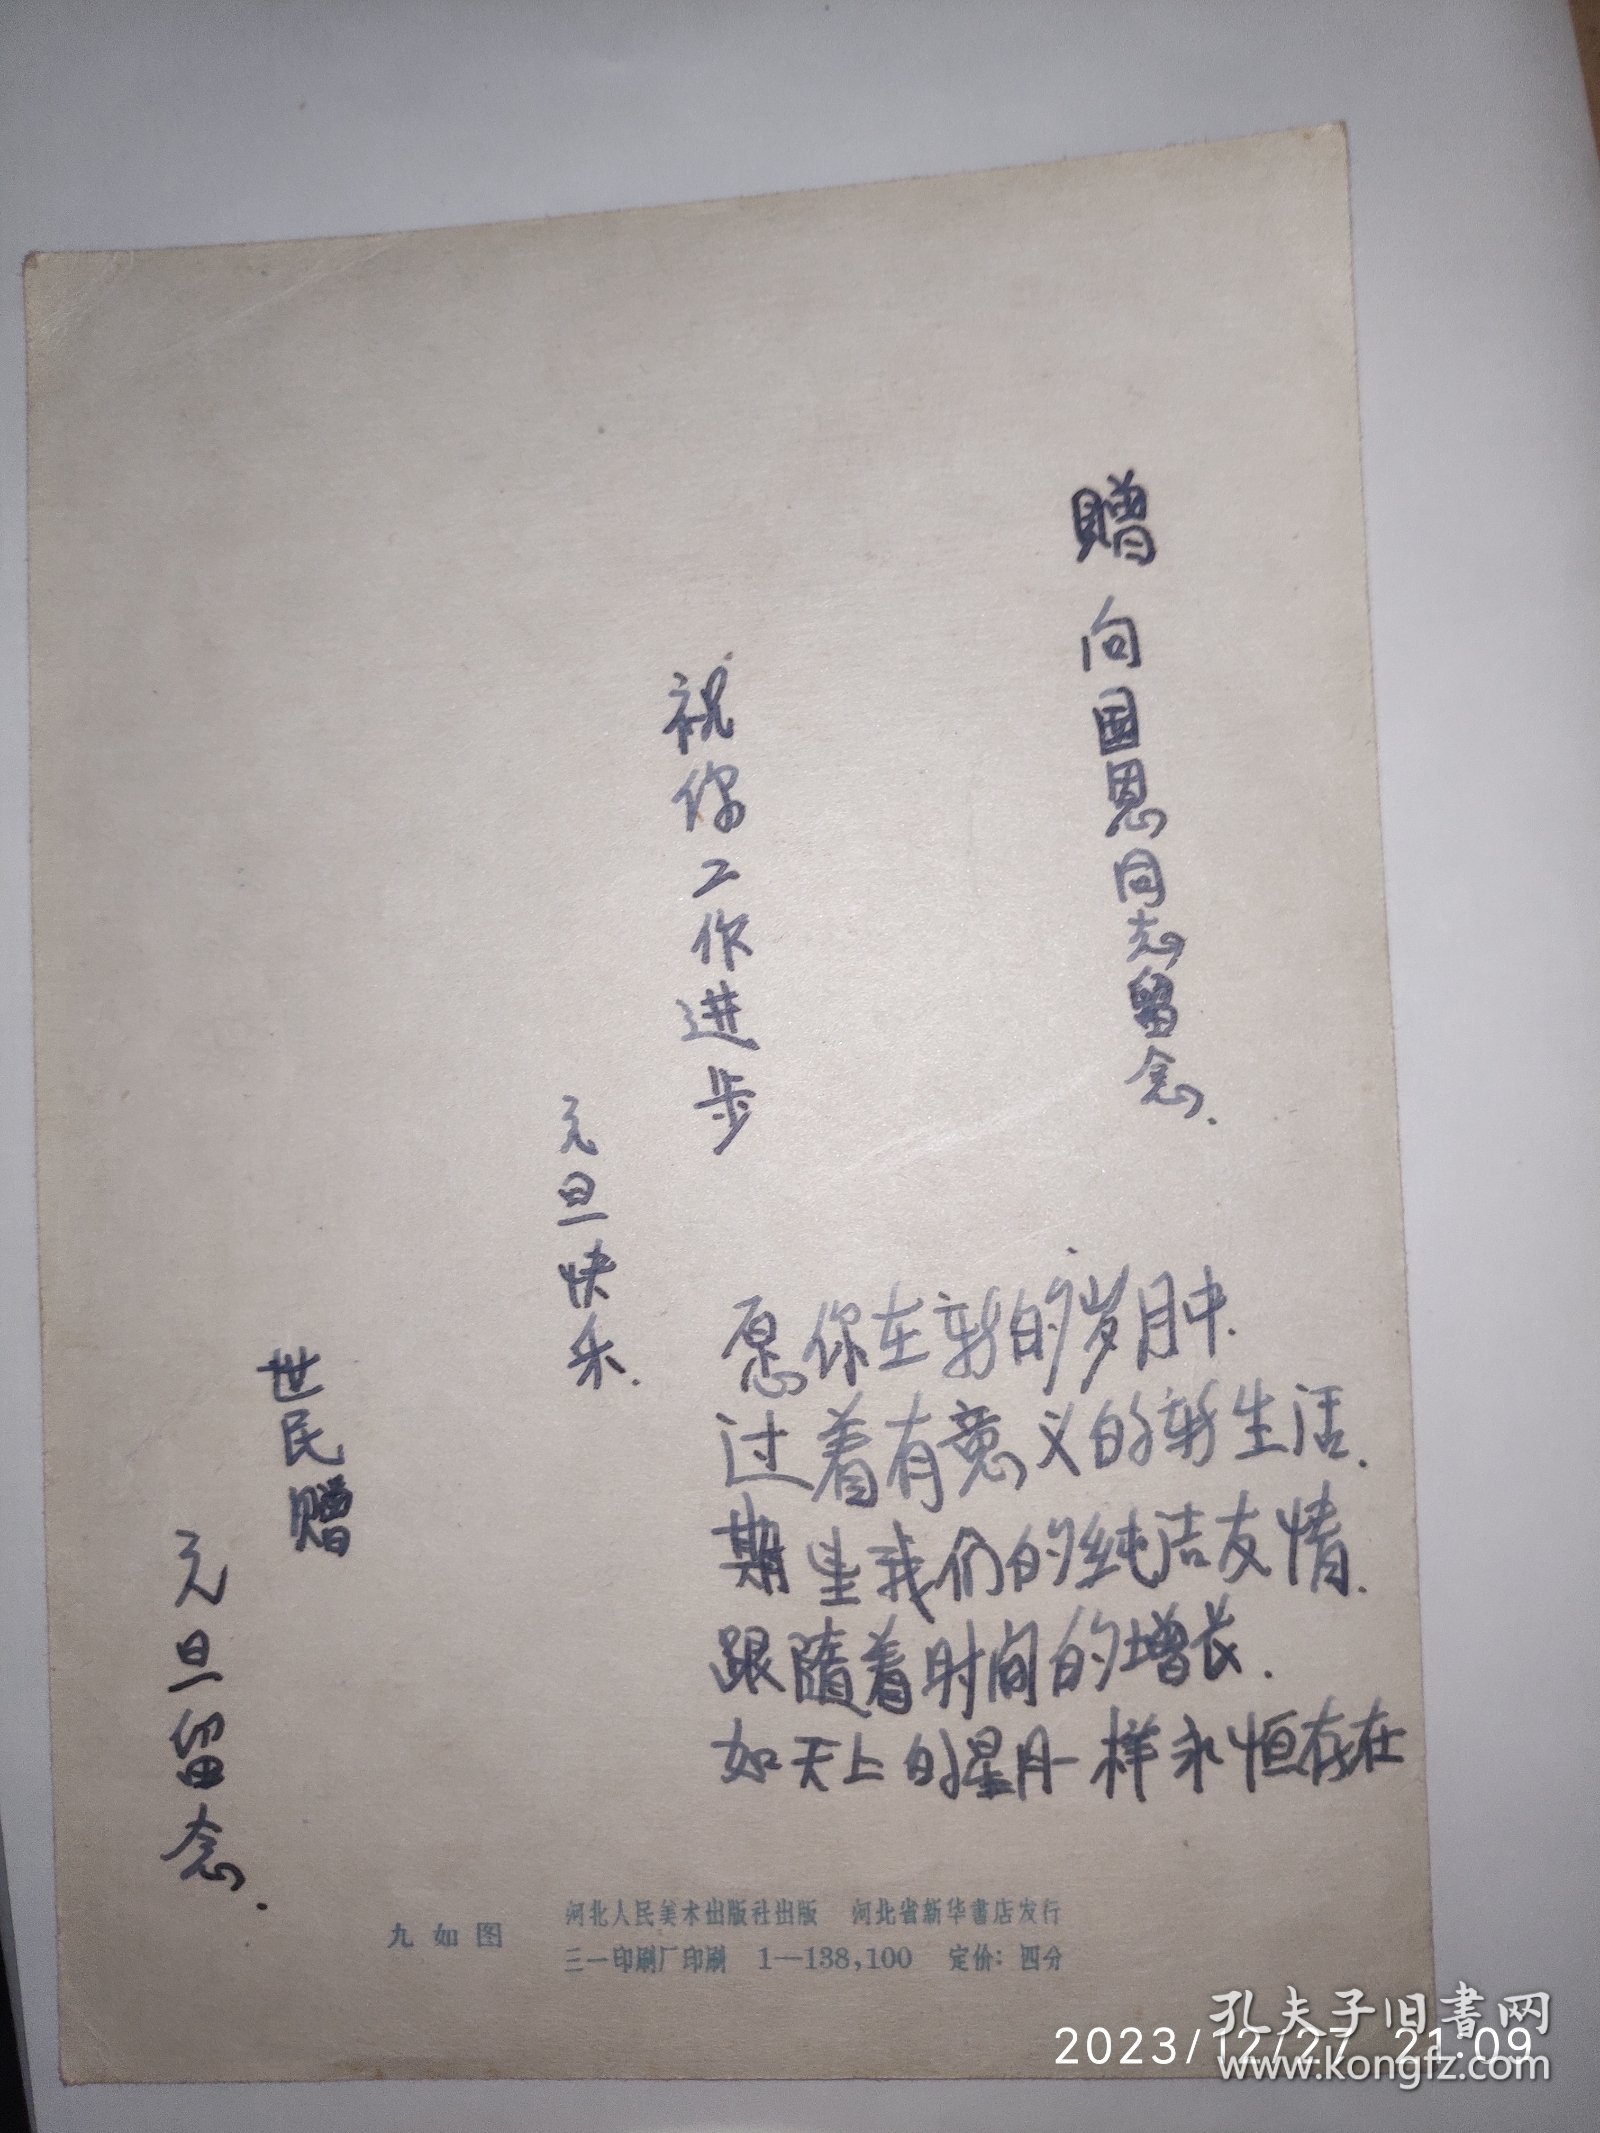 赠 向国恩同志留念.
祝你工作进步
元旦快乐.
愿你在新的岁月中.
过着有意义的新生活.
期望我们的纯洁友情.
跟随着时间的增长.
如天上的星月一样永恒存在
世民赠
元旦留念.
九如图
河北人民美术出版社出版 河北省新华書店发行
三一印刷厂印刷 1—138,100 定价：四分
孔夫子旧書网
2023/12/27 21:09
www.kongfz.com